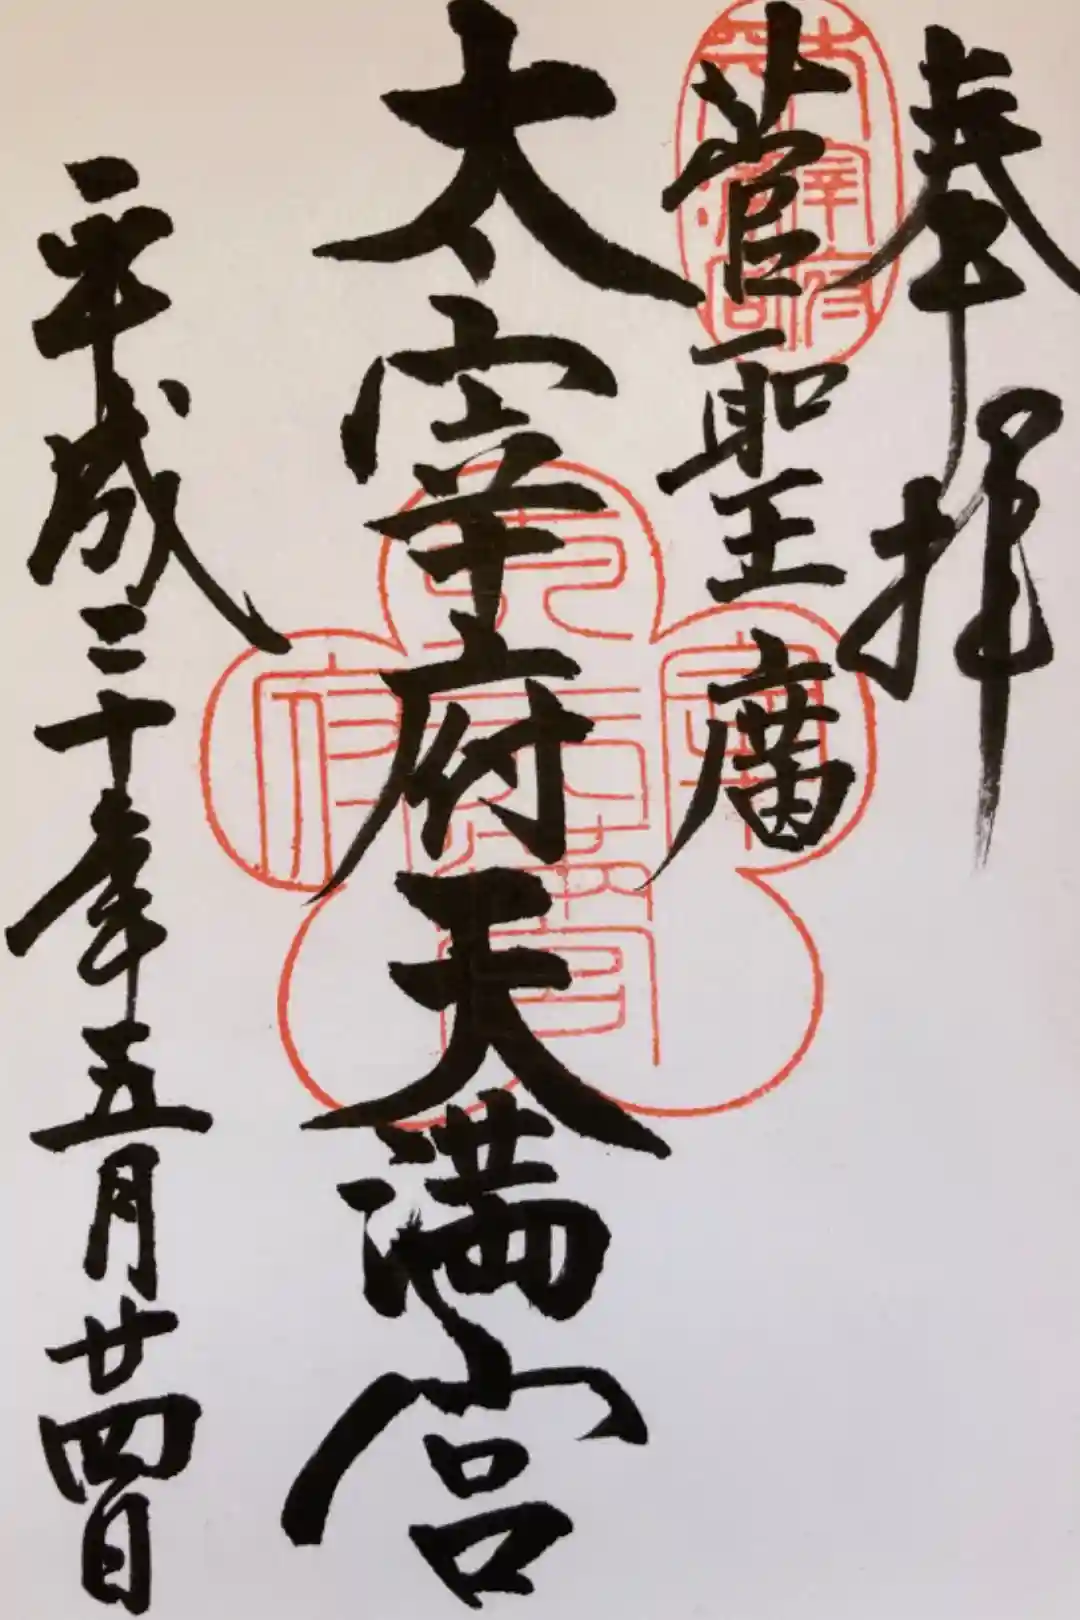 奉拝
菅聖庿
太宰府天満宮
平成二十年五月廿四日